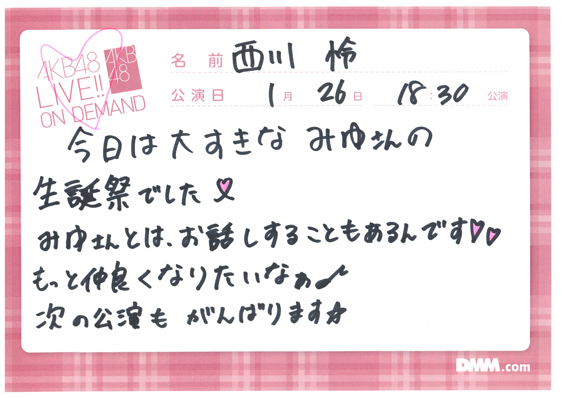 AKB48
LIVE!!
ON DEMAND
AKB
48
名前 西川 怜
公演日 1月 26日 18:30 公演
今日は大すきな みゆさんの
生誕祭でした♡
みゆさんとは、お話しすることもあるんです♡♡
もっと仲良くなりたいなぁ♪
次の公演も がんばります☆
DMM.com